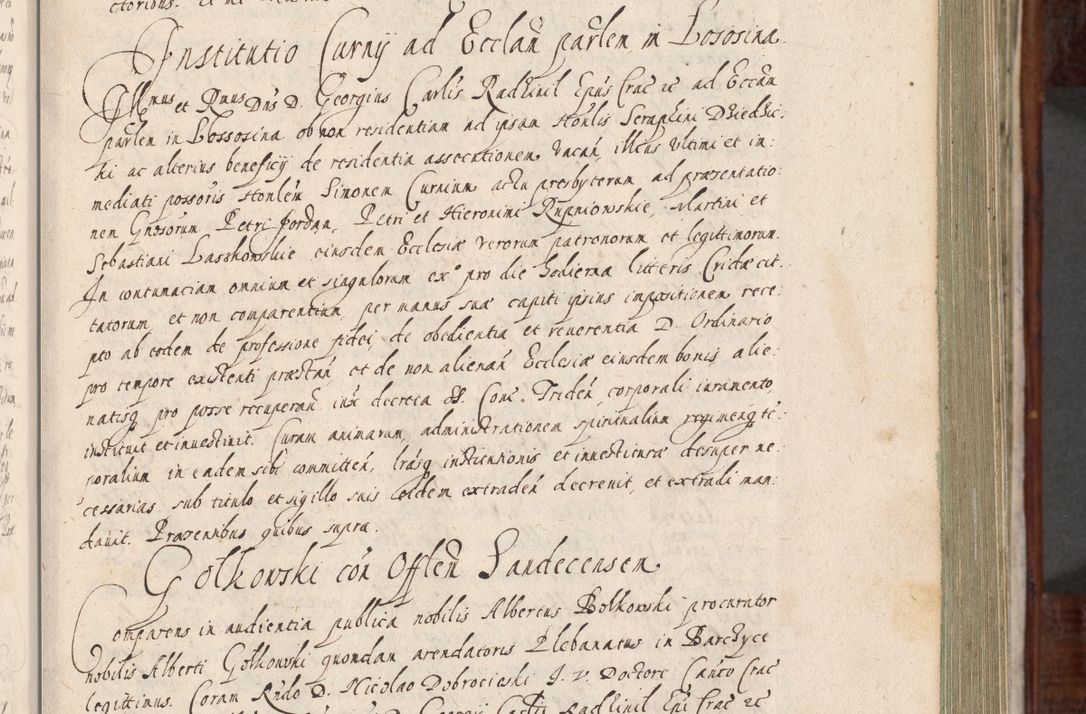 Institutio Curnÿ ad Ecclāʒ parl̄em in Lososina.
Ill̄mus et Rn̄dus Dn̄s D. Georgius Carl̄is Radziuil Ep̄us Crac̄ ꝛc ad Eccāʒ
parl̄em in Lossosina ob non residentiam ad ipsam Honl̄is Seraphini Dziedzic:
ki ac alterius beneficÿ de residentia assecutionem Vacan̄, illius Ultimi et im:
mediati possōris Honl̄em Simonem Curnium actu presbyterum ad præsentatio:
nem Gn̄osorum Petri Jordan, Petri et Hieronimi Rupniowskie, Martini et
Sebastiani Lasskowskie eiusdem Ecclesiæ verorum patronorum et legittimorum.
In contumaciam omnium et singulorum exº pro die hodierna litteris Cridæ cit:
tatorum, et non comparentium, per manus suæ capiti ipsius impositionem, rece:
pto ab eodem de professione fidei, de obedientia et reuerentia D. Ordinario
pro tempore existenti præstan̄, et de non alienan̄ Ecclesiæ eiusdem bonis, alie:
natisq̨ pro posse recuperan̄, iux̄ decreta SS. Conc̄. Triden̄ corporali iuramento,
instituit et inuestiuit. Curam animarum, administrationem spiritualium regimenq̨ tē:
poralium in eadem sibi committen̄, lr̄asq̨ institutionis et inuestituræ desuper ne:
cessarias sub titulo et sigillo suis eidem extraden̄ decreuit, et extradi man:
dauit. Præsentibus quibus supra.
Gołkowski con̄ Offl̄em Sandecensem.
Comparens in audientia publica nobilis Albertus Bolkowski procurator
nobilis Alberti Gołkowski quondam arendatoris Plebanatus in Barczyce
legittimus. Coram Rn̄do D. Nicolao Dobrocieski J. V. Doctore Can̄co Crac̄